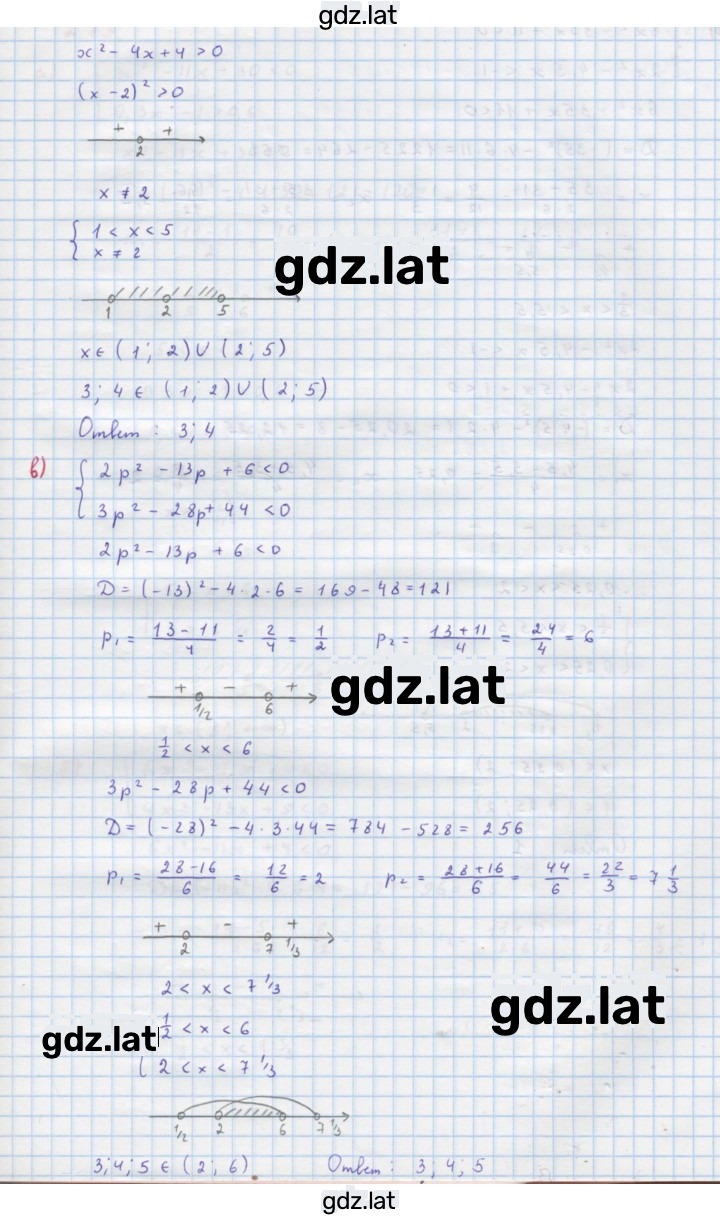 gdz.lat
x² - 4x + 4 > 0
(x - 2)² > 0
+ +
2
x ≠ 2
{ 1 < x < 5
x ≠ 2
gdz.lat
1 2 5
x ∈ (1; 2) ∪ (2; 5)
3; 4 ∈ (1; 2) ∪ (2; 5)
Ответ: 3; 4
в) { 2p² - 13p + 6 < 0
3p² - 28p + 44 < 0
2p² - 13p + 6 < 0
D = (-13)² - 4·2·6 = 169 - 48 = 121
p₁ = (13-11)/4 = 2/4 = 1/2 p₂ = (13+11)/4 = 24/4 = 6
+ - +
1/2 6
gdz.lat
1/2 < x < 6
3p² - 28p + 44 < 0
D = (-28)² - 4·3·44 = 784 - 528 = 256
p₁ = (28-16)/6 = 12/6 = 2 p₂ = (28+16)/6 = 44/6 = 22/3 = 7 1/3
+ - +
2 7 1/3
2 < x < 7 1/3
gdz.lat
gdz.lat
1/2 < x < 6
2 < x < 7 1/3
1/2 2 6 7 1/3
3; 4; 5 ∈ (2; 6) Ответ: 3; 4; 5
gdz.lat